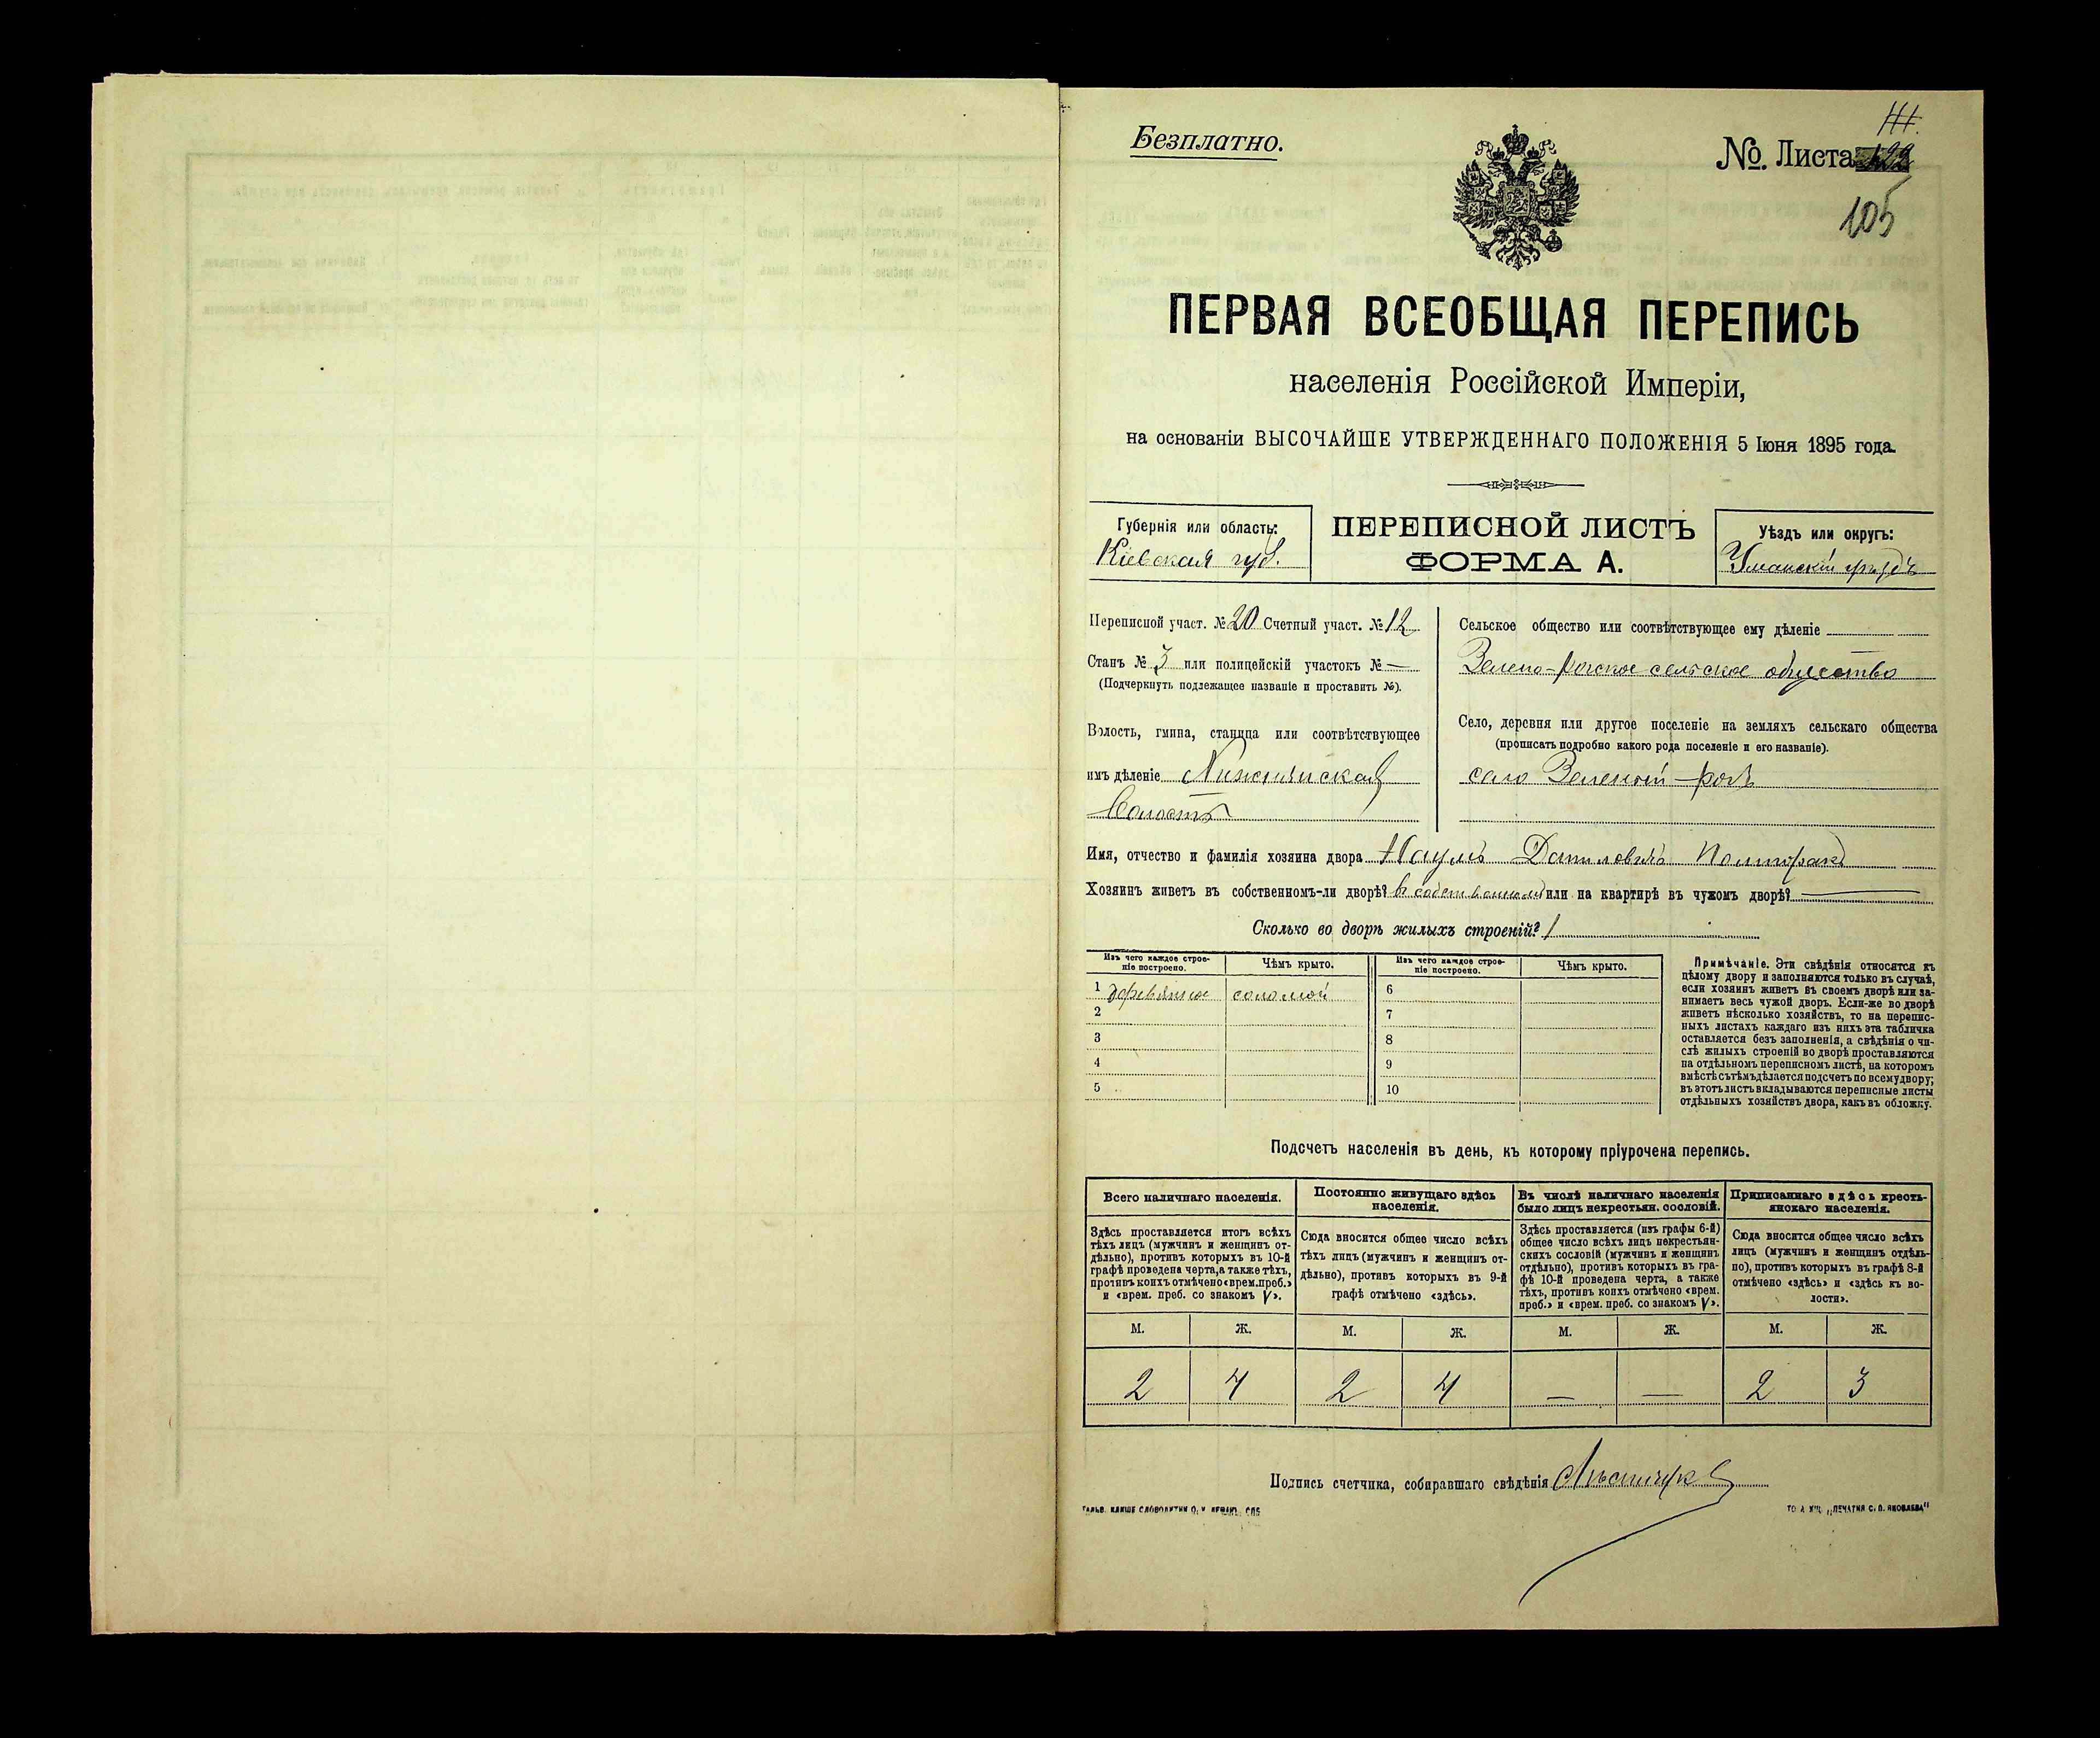 Безплатно.
№. Листа
105
ПЕРВАЯ ВСЕОБЩАЯ ПЕРЕПИСЬ
населенія Россійской Имперіи,
на основаніи ВЫСОЧАЙШЕ УТВЕРЖДЕННАГО ПОЛОЖЕНІЯ 5 Іюня 1895 года.
Губернія или область:
Кіевская губ.
ПЕРЕПИСНОЙ ЛИСТЪ
ФОРМА А.
Уѣздъ или округъ:
Уманскій уѣздъ
Переписной участ. № 20 Счетный участ. № 12
Станъ № 3 или полицейскій участокъ № —
(Подчеркнуть подлежащее названіе и проставить №).
Волость, гмина, станица или соотвѣтствующее
имъ дѣленіе
волость
Сельское общество или соотвѣтствующее ему дѣленіе
Зелено-Рогское сельское общество
Село, деревня или другое поселеніе на земляхъ сельскаго общества
(прописать подробно какого рода поселеніе и его названіе).
село Зеленый-рогъ
Имя, отчество и фамилія хозяина двора Наумъ Даниловичъ
Хозяинъ живетъ въ собственномъ-ли дворѣ? въ собственномъ или на квартирѣ въ чужомъ дворѣ? —
Сколько во дворѣ жилыхъ строеній? 1
Изъ чего каждое строе-
ніе построено.
Чѣмъ крыто.
Изъ чего каждое строе-
ніе построено.
Чѣмъ крыто.
1 деревянное соломой 6
2 7
3 8
4 9
5 10
Примѣчаніе. Эти свѣдѣнія относятся къ
цѣлому двору и заполняются только въ случаѣ,
если хозяинъ живетъ въ своемъ дворѣ или за-
нимаетъ весь чужой дворъ. Если-же во дворѣ
живетъ нѣсколько хозяйствъ, то на перепис-
ныхъ листахъ каждаго изъ нихъ эта табличка
оставляется безъ заполненія, а свѣдѣнія о чи-
слѣ жилыхъ строеній во дворѣ проставляются
на отдѣльномъ переписномъ листѣ, на которомъ
вмѣстѣ съ тѣмъ дѣлается подсчетъ по всему двору;
въ этотъ листъ вкладываются переписные листы
отдѣльныхъ хозяйствъ двора, какъ въ обложку.
Подсчетъ населенія въ день, къ которому пріурочена перепись.
Всего наличнаго населенія.
Постоянно живущаго здѣсь
населенія.
Въ числѣ наличнаго населенія
было лицъ некрестьян. сословій.
Приписаннаго здѣсь кресть-
янскаго населенія.
Здѣсь проставляется итогъ всѣхъ
тѣхъ лицъ (мужчинъ и женщинъ от-
дѣльно), противъ которыхъ въ 10-й
графѣ проведена черта, а также тѣхъ,
противъ коихъ отмѣчено «врем. преб.»
и «врем. преб. со знакомъ V».
Сюда вносится общее число всѣхъ
тѣхъ лицъ (мужчинъ и женщинъ от-
дѣльно), противъ которыхъ въ 9-й
графѣ отмѣчено «здѣсь».
Здѣсь проставляется (изъ графы 6-й)
общее число всѣхъ лицъ некрестьян-
скихъ сословій (мужчинъ и женщинъ
отдѣльно), противъ которыхъ въ гра-
фѣ 10-й проведена черта, а также
тѣхъ, противъ коихъ отмѣчено «врем.
преб.» и «врем. преб. со знакомъ V».
Сюда вносится общее число всѣхъ
лицъ (мужчинъ и женщинъ отдѣль-
но), противъ которыхъ въ графѣ 8-й
отмѣчено «здѣсь» и «здѣсь къ во-
лости».
М. Ж. М. Ж. М. Ж. М. Ж.
2 4 2 4 — — 2 3
Подпись счетчика, собиравшаго свѣдѣнія